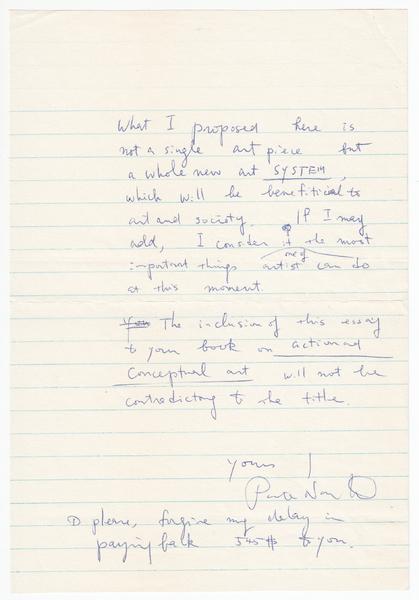 What I proposed here is
not a single art piece but
a whole new art SYSTEM,
which will be benefitical to
art and society. If I may
add, I consider it the most
one of
important things artist can do
at this moment.
You The inclusion of this essay
to your book on action and
Conceptual art will not be
contradictory to the title.
Yours
please, forgive my delay in
paying back 545 $ to you.